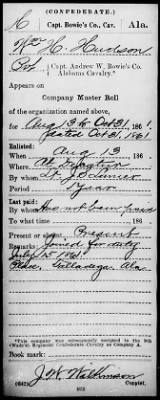 (CONFEDERATE.)
C Capt. Bowie's Co., Cav. Ala.
Wm H. Hudson
Pvt Capt. Andrew W. Bowie's Co.
Alabama Cavalry.*
Appears on
Company Muster Roll
of the organization named above,
for Aug 13 to Oct 31, 1861.
dated Oct 31, 1861
Enlisted:
When Aug 13, 186
Where
By whom Lt. J.
Period 1 Year
Last paid:
By whom Has not been paid
To what time , 186 .
Present or absent Present
Remarks: Joined for duty
July 15 1861
Talladega Ala.
*This company was subsequently assigned to the 8th
(Wade's) Regiment Confederate Cavalry as Company
Book mark:
J W Wilkinson
(642) Copyist.